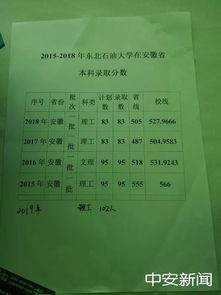 2015-2018年东北石油大学在安徽省
本科录取分数
序号 省份 批次 科类 计划数 录取数 省线 校线
2018年 安徽 一批 理工 83 83 505 527.9666
2017年 安徽 一批 理工 83 83 487 504.9583
2016年 安徽 一批 文理 95 95 518 531.9243
2015年 安徽 一批 理工 95 95 555 566
2019年 理工 102人
中安新闻